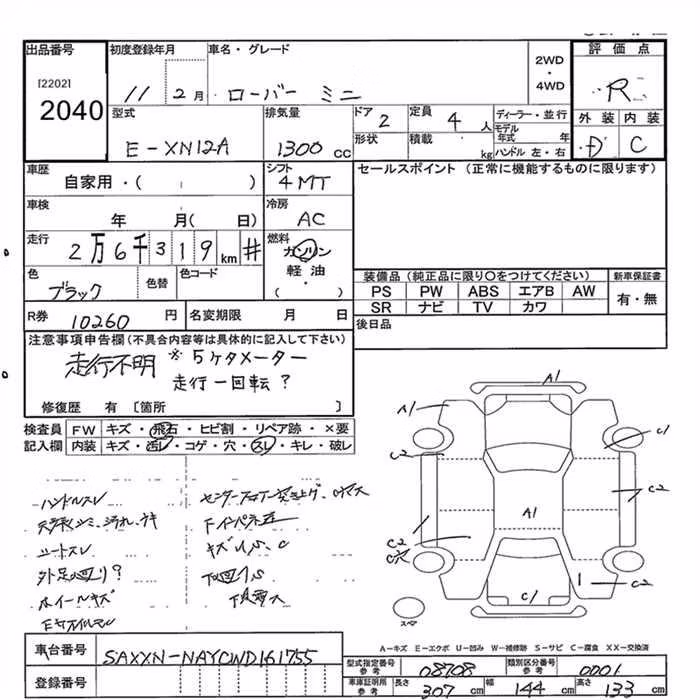 出品番号 初度登録年月 車名・グレード 2WD・4WD 評価点
[2202]
2040
11 2月 ローバー ミニ R
型式 排気量 ドア 2 定員 4人 ディーラー・並行 外装 内装
E-XN12A 1300cc 形状 積載 kg モデル年式 年 ハンドル 左・右 D C
車歴 自家用・( ) シフト 4MT セールスポイント(正常に機能するものに限ります)
車検 年 月( 日) 冷房 AC
走行 2万6千319km # 燃料 ガソリン
軽油
・
( )
色 ブラック 色替 色コード
装備品(純正品に限り○をつけてください) 新車保証書
PS PW ABS エアB AW 有・無
SR ナビ TV カワ
R券 10260円 名変期限 月 日 後日品
注意事項申告欄(不具合内容等は具体的に記入して下さい)
走行不明 ※5ケタメーター
走行一回転?
修復歴 有 [箇所 ]
検査員 FW キズ・飛石・ヒビ割・リペア跡・×要
記入欄 内装 キズ・汚レ・コゲ・穴・スレ・キレ・破レ
ハンドルスレ
シートスレ
キズ、S、C
外足廻り?
下廻りS
ホイールキズ
A1
A1
C1
C2
C2
A1
C2
C穴
C2
C1
スペア
A-キズ E-エクボ U-凹み W-補修跡 S-サビ C-腐食 XX-交換済
車台番号 SAXXN-NAYCWD161755
登録番号
型式指定番号 参考 08708 類別区分番号 参考 0001
車庫証明用 参考 長さ 307cm 幅 144cm 高さ 133cm